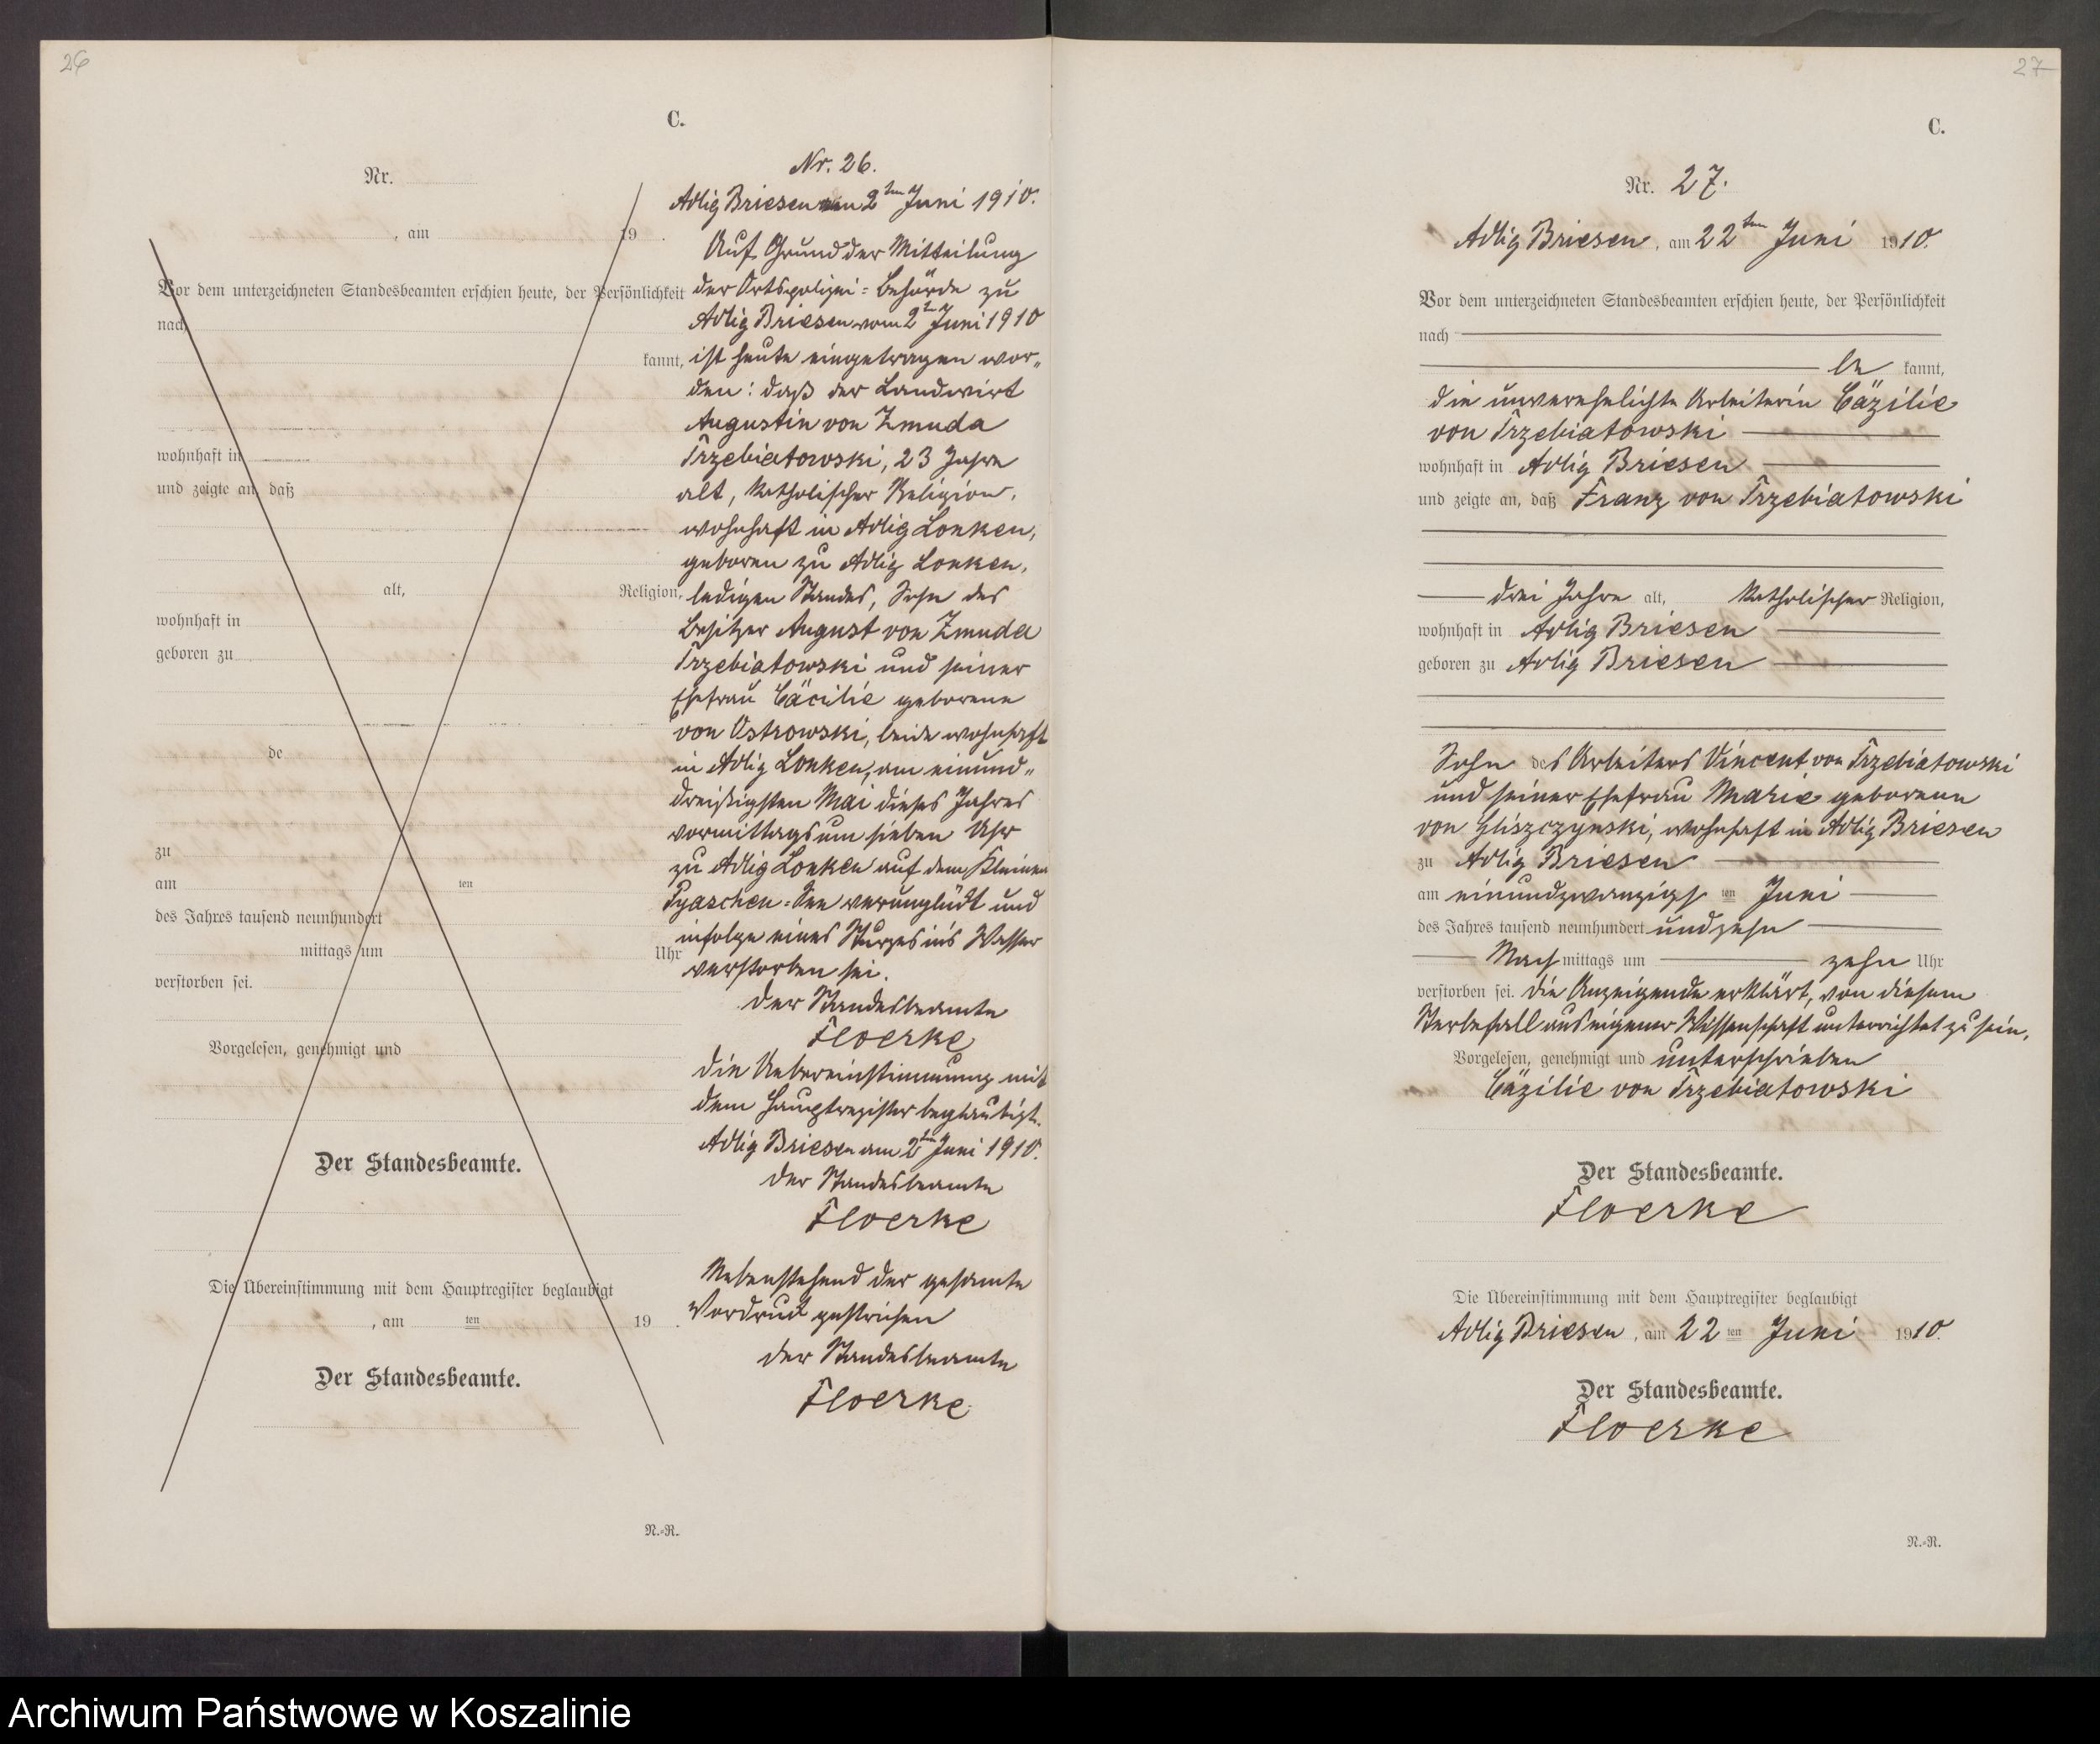 26
C.
Nr.
, am 19 .
Vor dem unterzeichneten Standesbeamten erschien heute, der Persönlichkeit
nach
kannt,
wohnhaft in
und zeigte an, daß
alt, Religion,
wohnhaft in
geboren zu
de
zu
am ten
des Jahres tausend neunhundert
mittags um Uhr
verstorben sei.
Vorgelesen, genehmigt und
Der Standesbeamte.
Die Übereinstimmung mit dem Hauptregister beglaubigt
, am ten 19 .
Der Standesbeamte.
N.-R.
Nr. 26.
Adlig Briesen am 2ten Juni 1910.
Auf Grund der Mitteilung
der Ortspolizei=Behörde zu
Adlig Briesen vom 2ten Juni 1910
ist heute eingetragen wor„
den: daß der Landwirt
Augustin von Zmuda
Trzebiatowski, 23 Jahre
alt, katholischer Religion,
wohnhaft in Adlig Lonken,
geboren zu Adlig Lonken,
ledigen Standes, Sohn des
Besitzer August von Zmuda
Trzebiatowski und seiner
Ehefrau Cäcilie geborene
von Ostrowski, beide wohnhaft
in Adlig Lonken, am einund„
dreißigsten Mai dieses Jahres
vormittags um sieben Uhr
zu Adlig Lonken auf dem Kleinen
Pyaschen=See verunglückt und
infolge eines Sturzes in's Wasser
verstorben sei.
Der Standesbeamte
Floerke
Die Uebereinstimmung mit
dem Hauptregister beglaubigt.
Adlig Briesen am 2ten Juni 1910.
Der Standesbeamte
Floerke
Nebenstehend der gesamte
Vordruck gestrichen
Der Standesbeamte
Floerke
27
C.
Nr. 27.
Adlig Briesen, am 22ten Juni 1910.
Vor dem unterzeichneten Standesbeamten erschien heute, der Persönlichkeit
nach
be kannt,
die unverehelichte Arbeiterin Cäzilie
von Trzebiatowski
wohnhaft in Adlig Briesen
und zeigte an, daß Franz von Trzebiatowski
drei Jahre alt, katholischer Religion,
wohnhaft in Adlig Briesen
geboren zu Adlig Briesen
Sohn des Arbeiters Vincent von Trzebiatowski
und seiner Ehefrau Marie geborene
von Gliszczynski, wohnhaft in Adlig Briesen
zu Adlig Briesen
am einundzwanzigs ten Juni
des Jahres tausend neunhundert undzehn
Nach mittags um zehn Uhr
verstorben sei. Die Anzeigende erklärt, von diesem
Sterbefall aus eigener Wissenschaft unterrichtet zu sein.
Vorgelesen, genehmigt und unterschrieben
Cäzilie von Trzebiatowski
Der Standesbeamte.
Floerke
Die Übereinstimmung mit dem Hauptregister beglaubigt
Adlig Briesen, am 22 ten Juni 1910.
Der Standesbeamte.
Floerke
N.-R.
Archiwum Państwowe w Koszalinie